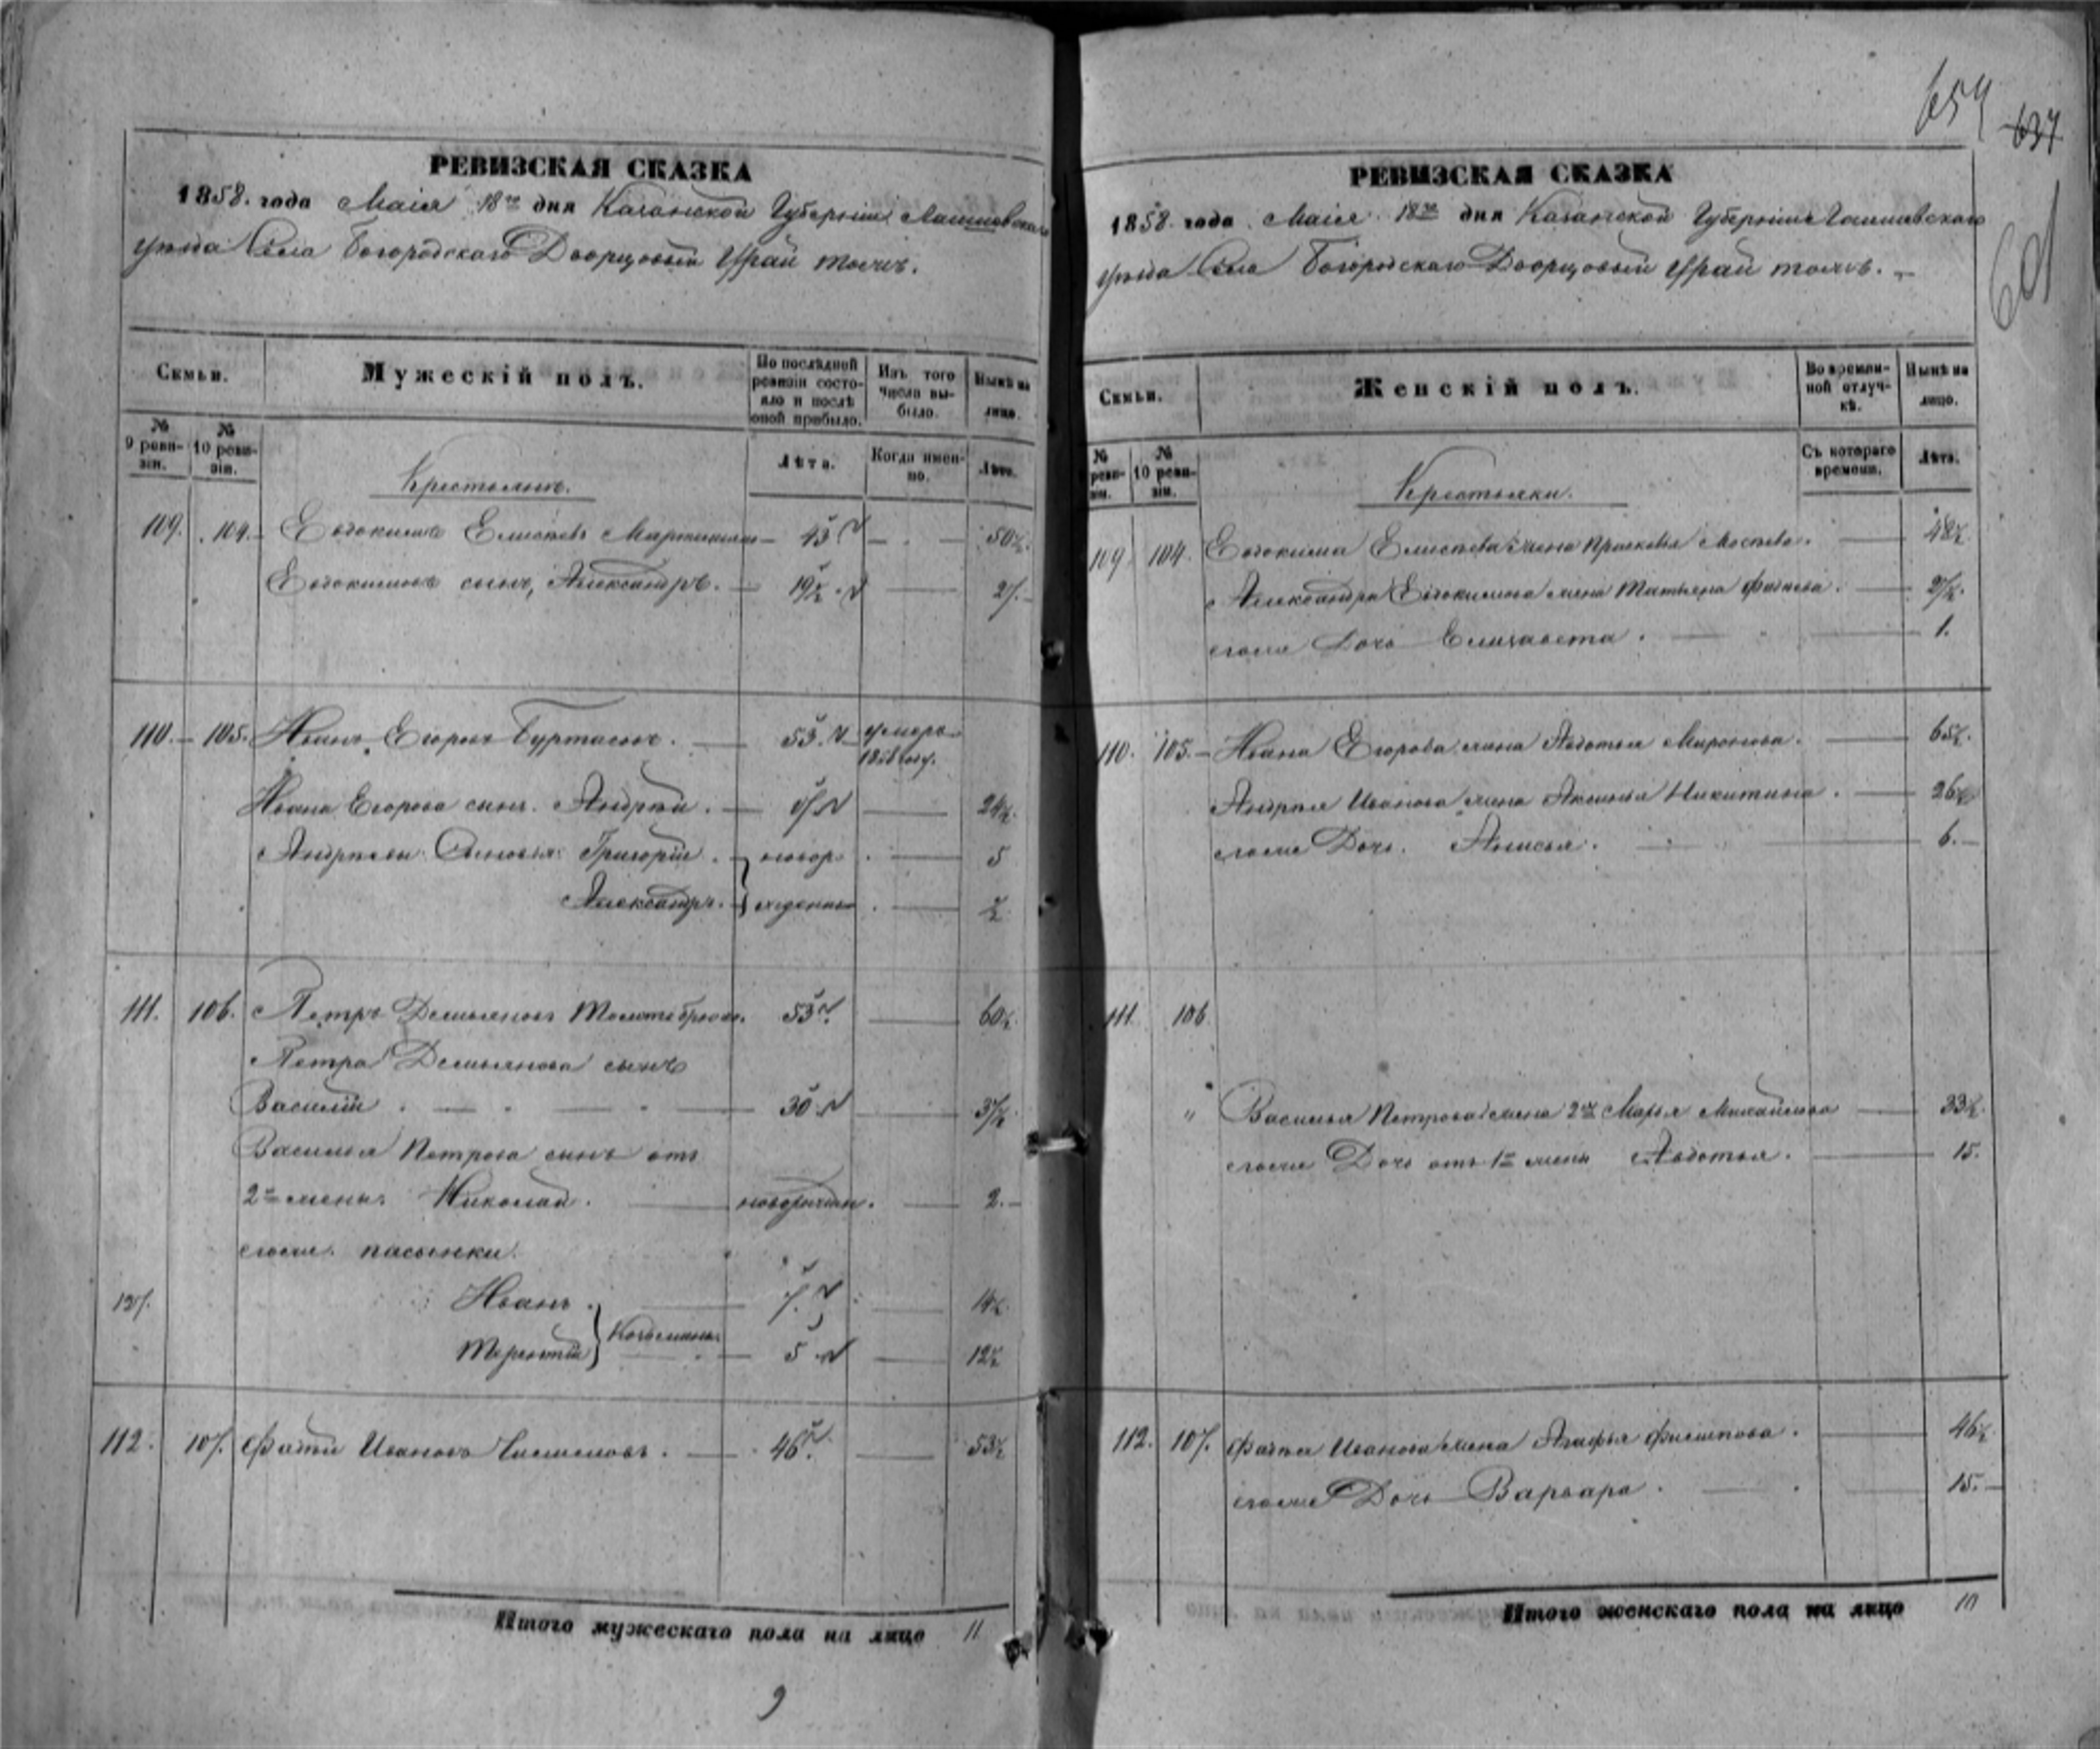 РЕВИЗСКАЯ СКАЗКА
1858. года Маія 18го дня Казанской Губерніи Лаишевскаго
уѣзда Села Богородскаго Дворцовый Урай тожъ.
Семьи.
Мужескій полъ.
По послѣдней ревизіи состояло и послѣ оной прибыло.
Изъ того числа выбыло.
Нынѣ на лицо.
№ 9 ревизіи.
№ 10 ревизіи.
Лѣта.
Когда именно.
Лѣта.
Крестьянъ.
109. 104. Евдокимъ Елисѣевъ 43 50½.
Евдокимовъ сынъ, Александръ. 19½ 27.
110. 105. Иванъ Егоровъ Буртасовъ. 53. умеръ
Ивана Егорова сынъ Андрѣй. 17 24½.
Андрѣевы Сыновья Григорій. новор 5
Александръ. жденны ½
111. 106. Петръ Демьяновъ 53 60½.
Петра Демьянова сынъ
Василій 30 37½.
Василья Петрова сынъ отъ
2й жены Николай. новорожден. 2.
егоже пасынки
137. Иванъ 7. 14½.
Терентій 5 12½
112. 107. Фадѣй Ивановъ 46. 53½
Итого мужескаго пола на лицо 11
9
654 637
601
РЕВИЗСКАЯ СКАЗКА
1858 года Маія 18го дня Казанской Губерніи Лаишевскаго
уѣзда Села Богородскаго Дворцовый Урай тожъ.
Семьи.
Женскій полъ.
Во временной отлучкѣ.
Нынѣ на лицо.
№ ревизіи.
№ 10 ревизіи.
Съ котораго времени.
Лѣта.
Крестьянки.
109 104. Евдокима Елисѣева жена Прасковья 48½
Александра Евдокимова жена Татьяна Фадѣева. 27½.
егоже Дочь Елизавета. 1.
110. 105. Ивана Егорова жена Авдотья Миронова. 65½.
Андрѣя Иванова жена Аксинья Никитина. 26½
егоже Дочь. Анисья. 6.
111 106
" Василья Петрова жена 2я Марья Михайлова 33½.
егоже Дочь отъ 1й жены Авдотья. 15.
112. 107. Фадѣя Иванова жена Агафья Филипова. 46½.
егоже Дочь Варвара. 15.
Итого женскаго пола на лицо 10